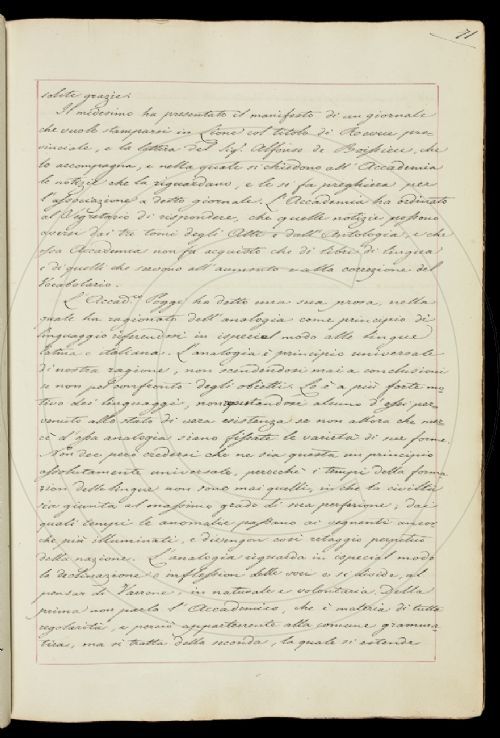 71
solite grazie.
Il medesimo ha presentato il manifesto di un giornale
che vuole stamparsi in Lione col titolo di Revue pro-
vinciale, e la lettera del Sig.r Alfonso de Boissieu, che
lo accompagna, e nella quale si chiedono all'Accademia
le notizie che la riguardano, e le si fa preghiera per
l'associazione a detto giornale. L'Accademia ha ordinato
al Segretario di rispondere, che quelle notizie possono
aversi dai tre tomi degli Atti e dall'Antologia, e che
essa Accademia non fa acquisto che di libri di lingua
e di quelli che servono all'aumento e alla correzione del
Vocabolario.
L'Accad.co Poggi ha detto una sua prosa, nella
quale ha ragionato dell'analogia come principio di
linguaggio riferendosi in ispecial modo alle lingue
latina e italiana. L'analogia è principio universale
di nostra ragione, non scendendosi mai a conclusioni
se non pel confronto degli obietti. Lo è a più forte mo-
tivo dei linguaggi, non reputandosi alcuno d'essi per-
venuto allo stato di vera esistenza se non allora che mer-
cè d'essa analogia siano fissate le varietà di sue forme.
Non dee però credersi che ne sia questa un principio
assolutamente universale, perocchè i tempi della forma-
zion delle lingue non sono mai quelli, in che la civiltà
sia giunta al massimo grado di sua perfezione, dai
quali tempi le anomalie passano ai seguenti ancor-
che più illuminati, e divengon così retaggio perpetuo
della nazione. L'analogia riguarda in especial modo
la declinazione o inflession delle voci e si divide, al
pensar di Varrone, in naturale e volontaria. Della
prima non parla l'Accademico, che è materia di tutta
regolarità, e perciò appartenente alla comune gramma-
tica, ma si tratta della seconda, la quale si estende